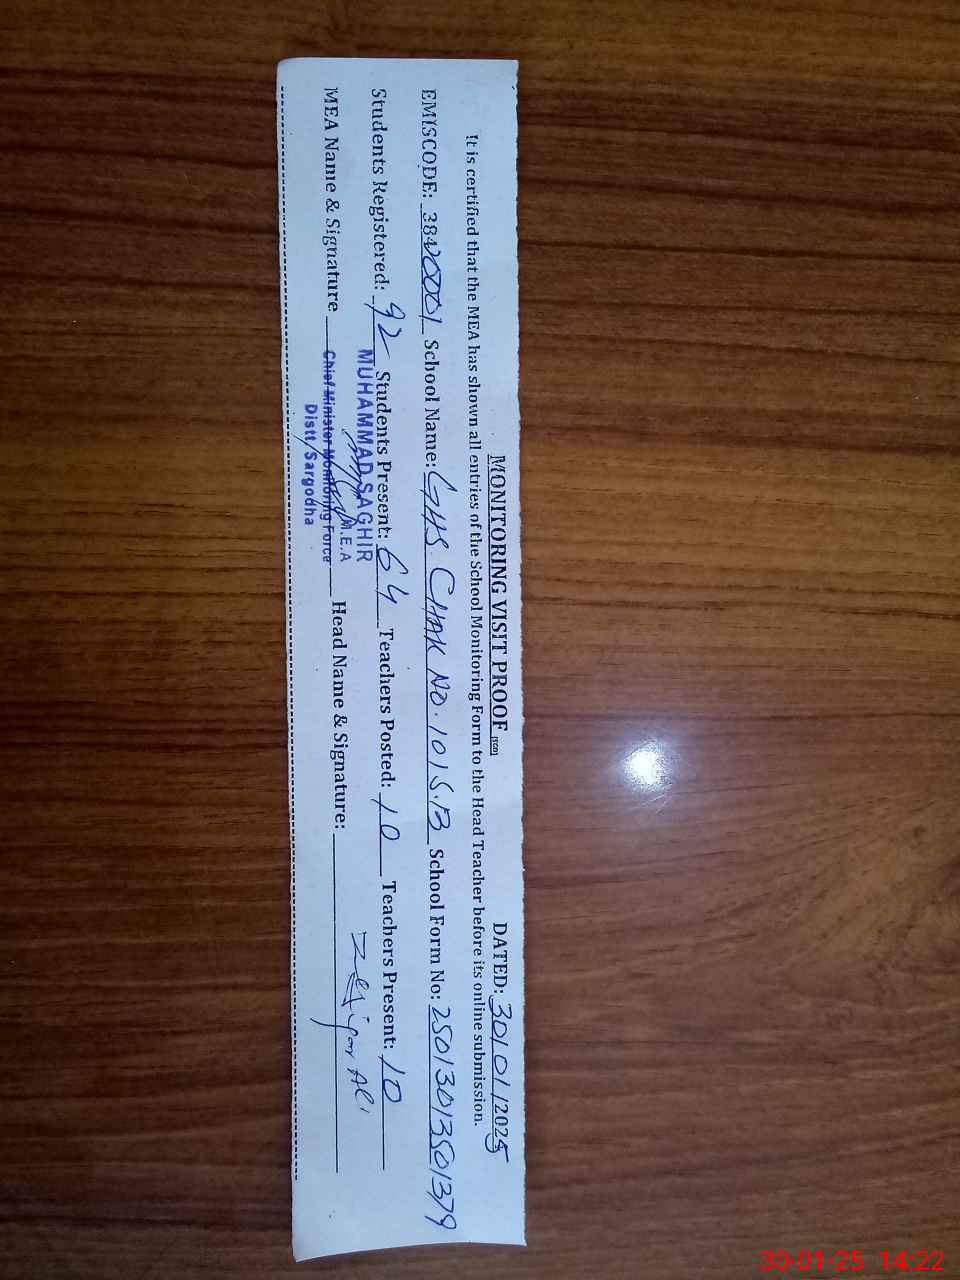 MONITORING VISIT PROOF (SED) DATED: 30/01/2025
It is certified that the MEA has shown all entries of the School Monitoring Form to the Head Teacher before its online submission.
EMISCODE: 38420001 School Name: GHS CHAK NO. 101 S.B School Form No: 25013013501379
Students Registered: 92 Students Present: 64 Teachers Posted: 10 Teachers Present: 10
MUHAMMAD SAGHIR
M.E.A
MEA Name & Signature Chief Minister Monitoring Force Head Name & Signature: Ali
Distt Sargodha
30-01-25 14:22